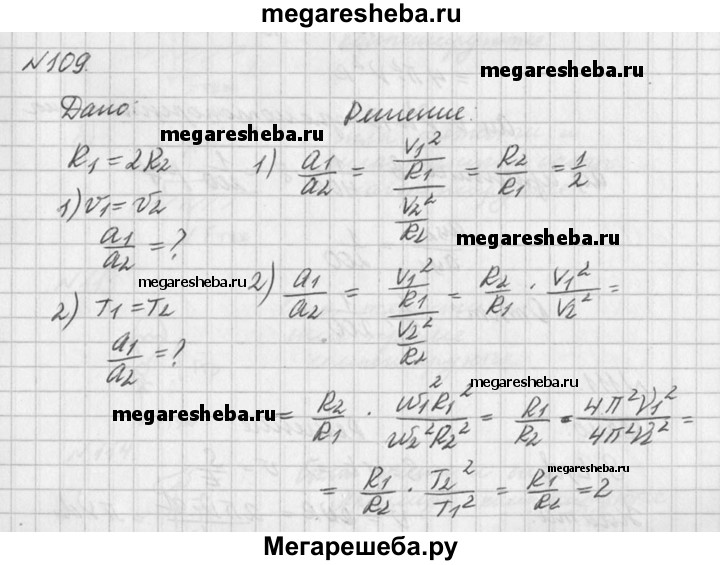 megaresheba.ru
№109.
megaresheba.ru
Дано: Решение:
megaresheba.ru
R1 = 2R2 1) a1/a2 = (V1²/R1)/(V2²/R2) = R2/R1 = 1/2
1) v1 = v2
a1/a2 = ?
megaresheba.ru
megaresheba.ru
2) T1 = T2 2) a1/a2 = (V1²/R1)/(V2²/R2) = R2/R1 · V1²/V2² =
a1/a2 = ?
megaresheba.ru
megaresheba.ru
= R2/R1 · ω1²R1²/ω2²R2² = R1/R2 · 4π²ν1²/4π²ν2² =
= R1/R2 · T2²/T1² = R1/R2 = 2
Мегарешеба.ру